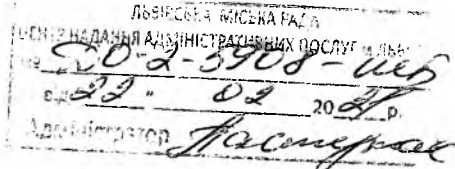 ЛЬВІВСЬКА МІСЬКА РАДА
ЦЕНТР НАДАННЯ АДМІНІСТРАТИВНИХ ПОСЛУГ м.ЛЬВ
№ 2-5908-
від 22 " 02 20 21 р.
Адміністратор